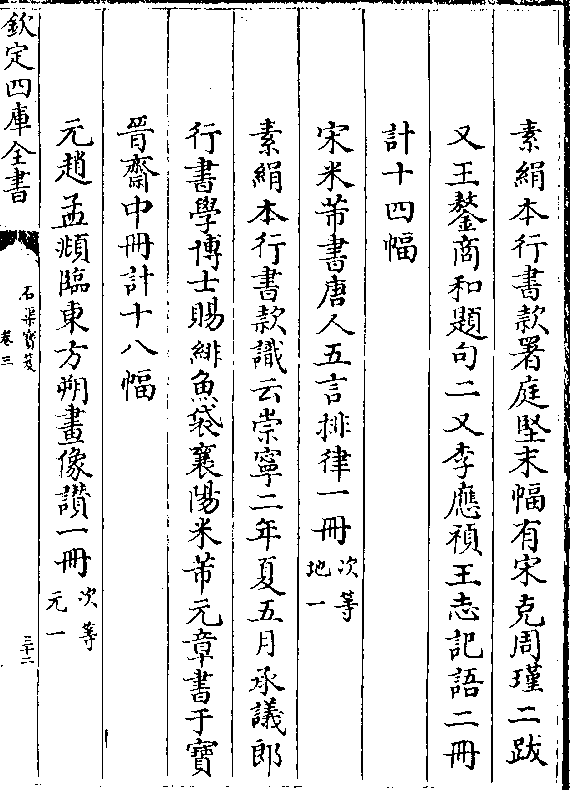 素絹本行書款署庭堅末幅有宋克周瑾二跋
又王鏊商和題句二又李應禎王志記語二冊
計十四幅
宋米芾書唐人五言排律一冊次等
地一
素絹本行書款識云崇寧二年夏五月承議郎
行書學博士賜緋魚袋襄陽米芾元章書于寶
晉齋中冊計十八幅
元趙孟頫臨東方朔畫像讚一冊次等
元一
欽定四庫全書
石渠寶笈
卷三
三十二